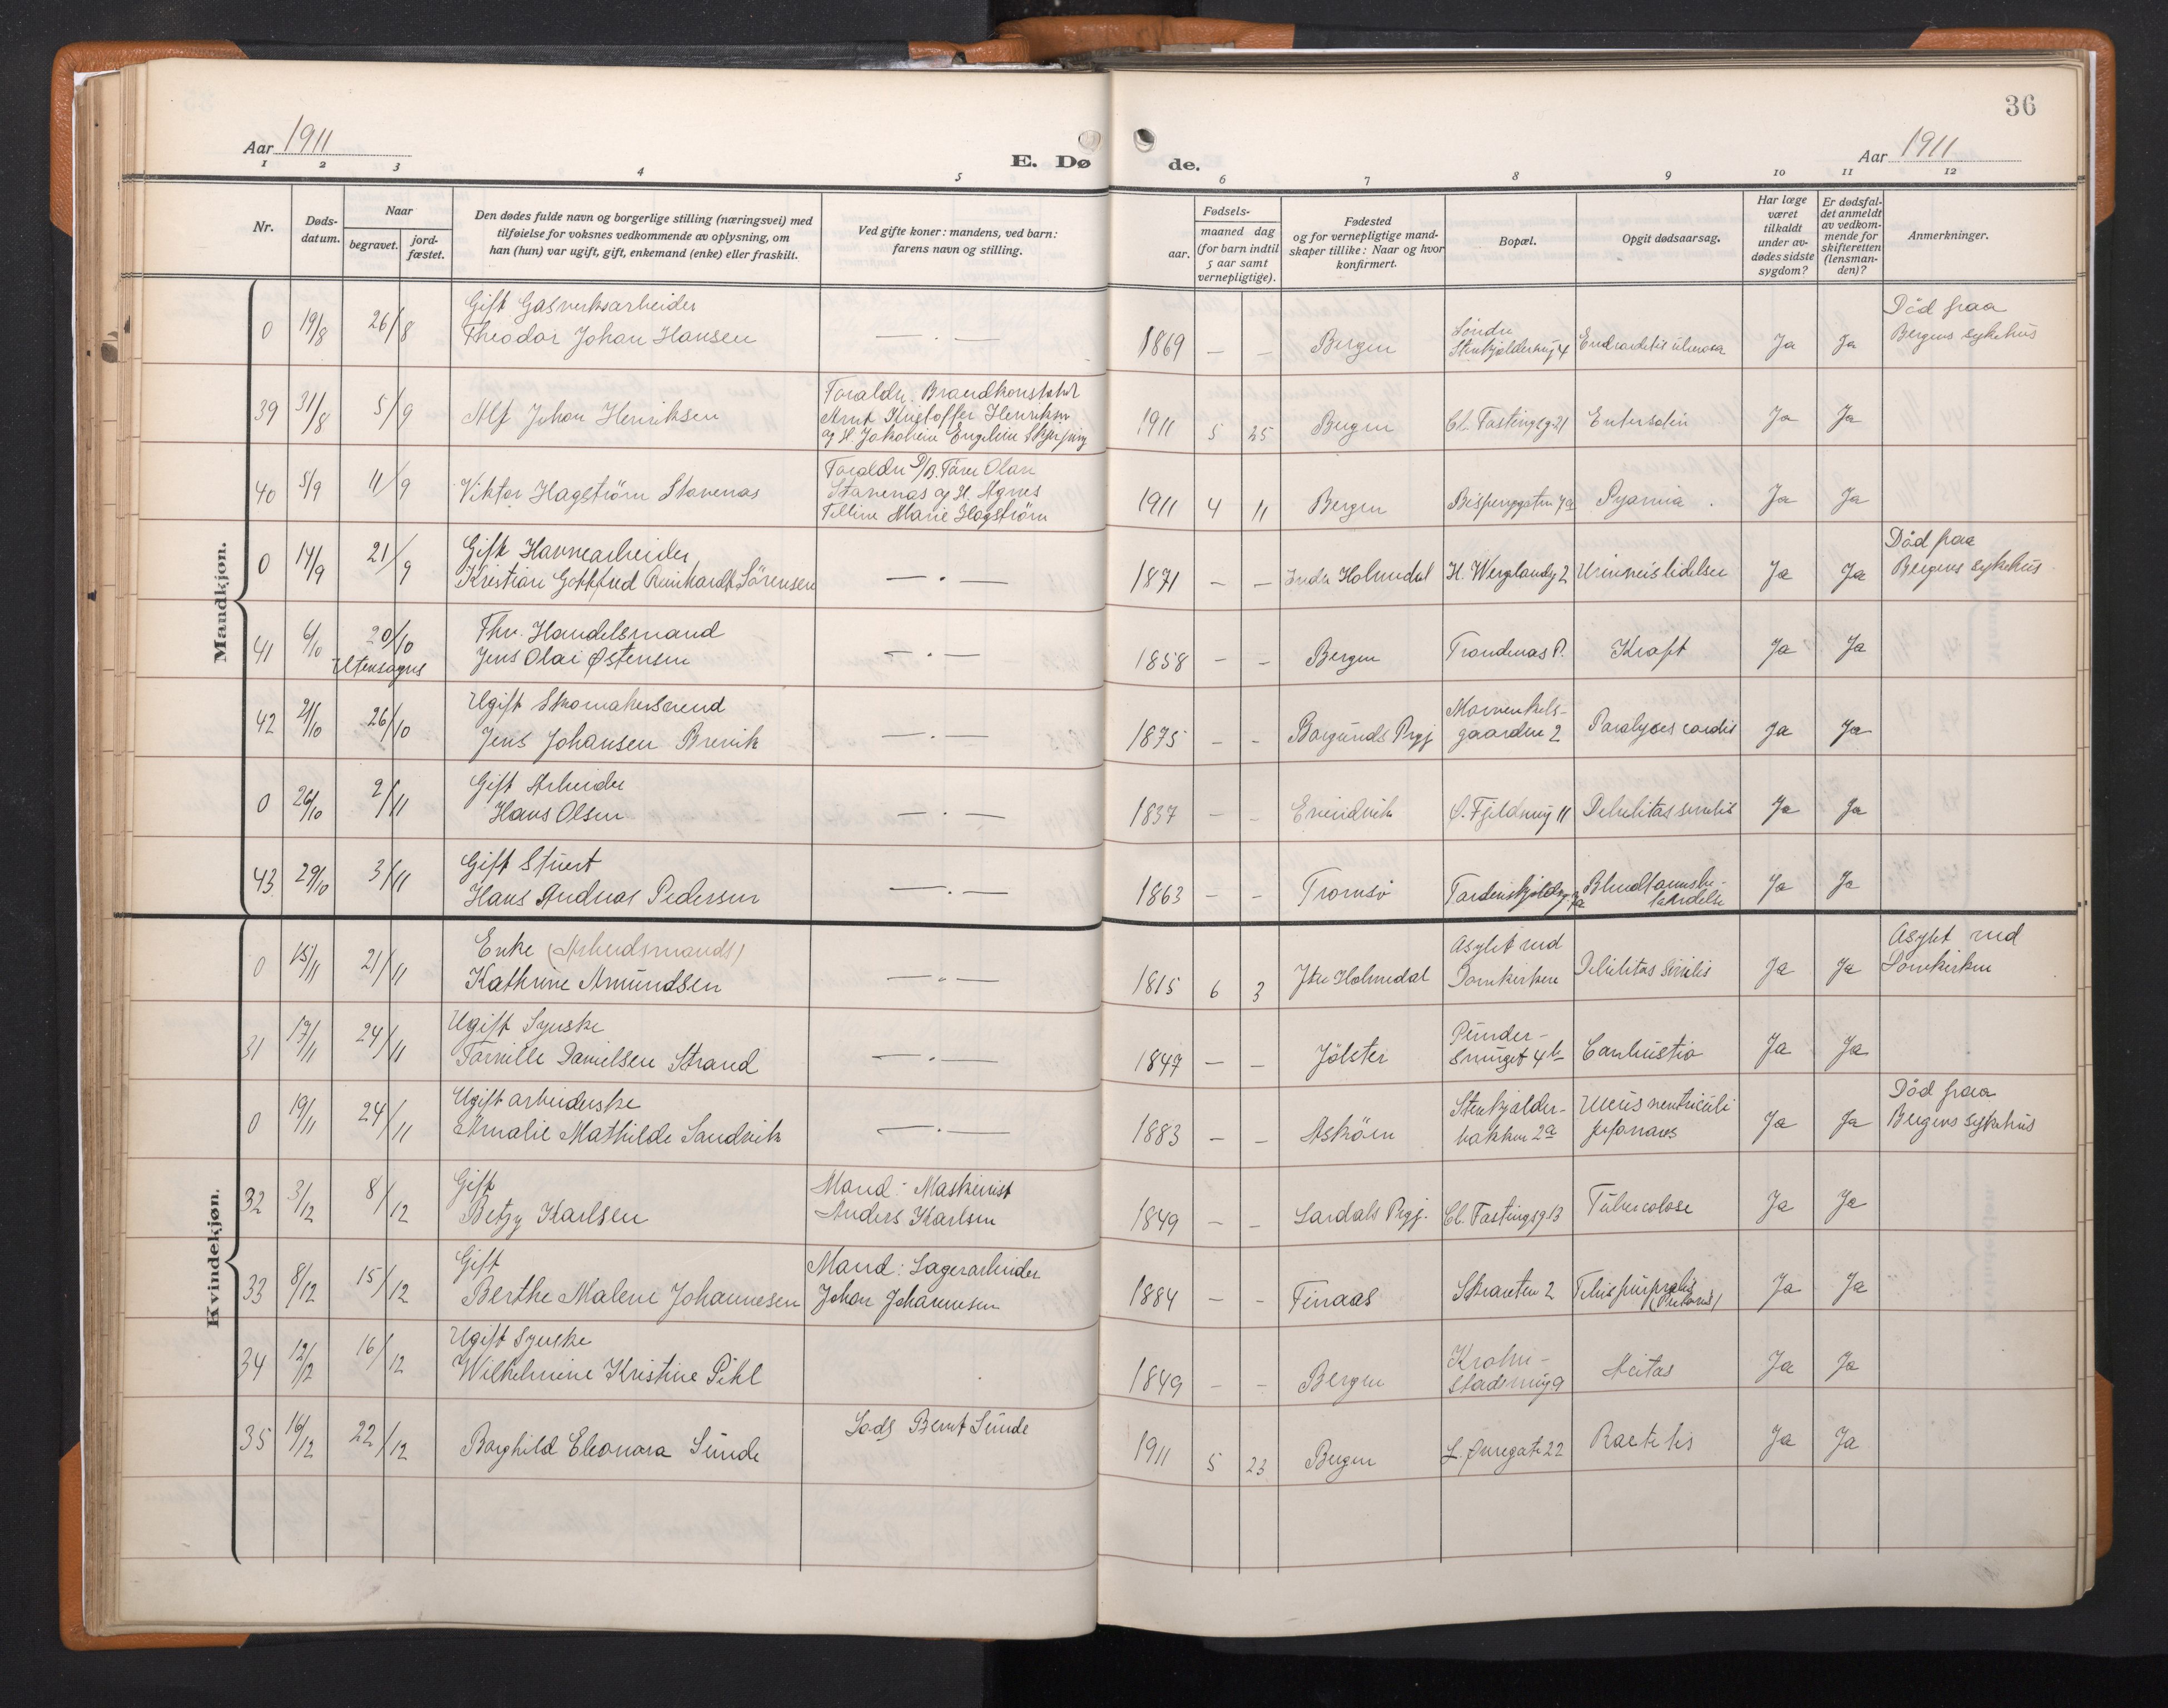 36
Aar 1911
E. Dø de.
Aar 1911
1 2 3 4 5 6 7 8 9 10 11 12
Nr.
Døds-
datum.
Naar
begravet.
jord-
fæstet.
Den dødes fulde navn og borgerlige stilling (næringsvei) med
tilføielse for voksnes vedkommende av oplysning, om
han (hun) var ugift, gift, enkemand (enke) eller fraskilt.
Ved gifte koner: mandens, ved barn:
farens navn og stilling.
Fødsels-
aar.
maaned dag
(for barn indtil
5 aar samt
vernepligtige).
Fødested
og for vernepligtige mand-
skaper tillike: Naar og hvor
konfirmert.
Bopæl.
Opgit dødsaarsag.
Har læge
været
tilkaldt
under av-
dødes sidste
sygdom?
Er dødsfal-
det anmeldt
av vedkom-
mende for
skifteretten
(lensman-
den)?
Anmerkninger.
Mandkjøn.
Gift Gasverksarbeider Død fraa
0 19/8 26/8 Theodor Johan Hansen — . — 1869 — — Bergen Søndre Stenkjelderveij 4 Ja Ja Bergens sykehus
Foraldre. Brandkonstabel
39 31/8 5/9 Alf Johan Henriksen Arnt Kristoffer Henriksen 1911 5 25 Bergen Cl. Fastingsg. 21 Ja Ja
og H. Jakobine Engeline
40 5/9 11/9 Viktor Hagstrøm Stavenas Stavenas og H. Agnes 1911 4 11 Bergen Pyamia . Ja Ja
Marie Hagstrøm
Gift Havnearbeider Død fraa
0 14/9 21/9 Kristian Gottfred Reinhardt Sørensen — . — 1871 — — Indre Holmedal H. Werglandsg 2 Urinveislidelse Ja Ja Bergens sykehus
Fhv. Handelsmand
41 6/10 20/10 Utensogns Jens Olai Østensen — . — 1858 — — Bergen Trondenas P. Kraft Ja Ja
Ugift Skomakersvend
42 21/10 26/10 Jens Johansen Brevik — . — 1875 — — Borgunds Prgj gaarden 2 Paralyses cordis Ja Ja
Gift Arbeider
0 26/10 2/11 Hans Olsen — . — 1837 — — Evindvik Ø. Fjeldveij 11 Debilitas senilis Ja Ja
Gift Stuert
43 29/10 3/11 Hans Andreas Pedersen — . — 1863 — — Tromsø Ja Ja
Kvindekjøn.
Enke (Arbeidsmands) Asylet ved Asylet ved
0 15/11 21/11 Kathrine Amundsen — . — 1815 6 3 Ytre Holmedal Domkirken Debilitas senilis Ja Ja Domkirken
Ugift Syerske
31 17/11 24/11 Danielsen Strand — . — 1847 — — Jølster smuget 4b Ja Ja
Ugift arbeiderske Stenkjelder- Ulcus ventriculi Død fraa
0 19/11 24/11 Amalie Mathilde Sandvik — . — 1883 — — Askøen bakken 2a Ja Ja Bergens sykehus
Gift Mand: Maskinist
32 3/12 8/12 Betzy Karlsen Anders Karlsen 1849 — — Lardals Prgj. Cl. Fastingsg. 13 Tuberculose Ja Ja
Gift Mand: Lagerarbeider
33 8/12 15/12 Berthe Malene Johannesen Johan Johannesen 1884 — — Finaas Skranten 2 Ja Ja
Ugift Syerske
34 12/12 16/12 Wilhelmine Kristine Pihl 1849 — — Bergen Ja Ja
Lods Bernt Sunde
35 16/12 22/12 Borghild Eleonora Sunde 1911 5 23 Bergen L. Øvregate 22 Ja Ja